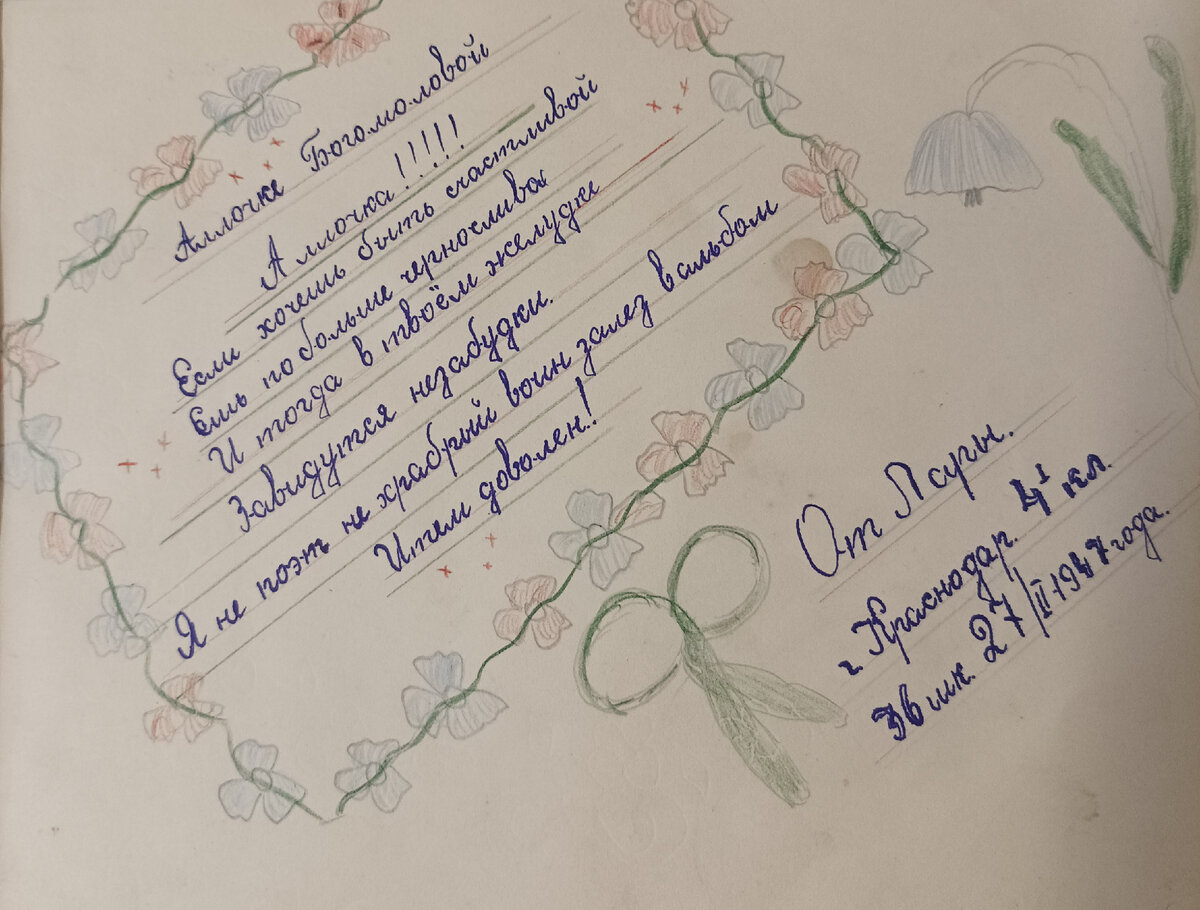 Аллочке Богомоловой
Аллочка!!!!!
Если хочешь быть счастливой
Ешь побольше чернослива
И тогда в твоём желудке
Завидутся незабудки.
Я не поэт не храбрый воин залез в альбом
И тем доволен!
От Лары.
г. Краснодар. 4 I кл.
36 шк. 27/II-1947 года.